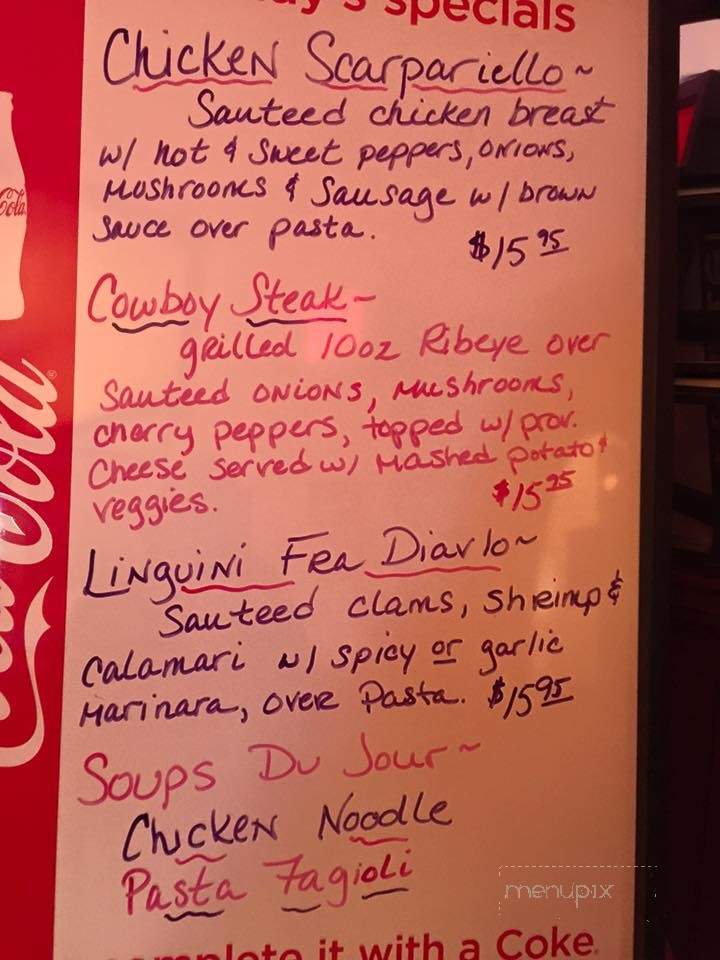 y's specials
Chicken Scarpariello~
Sauteed chicken breast
w/ hot & sweet peppers, onions,
mushrooms & Sausage w/ brown
sauce over pasta. $15 95
Cowboy Steak~
grilled 10oz Ribeye over
Sauteed onions, mushrooms,
cherry peppers, topped w/ prov.
Cheese served w/ mashed potato &
veggies. $15 25
Linguini Fra Diavlo~
Sauteed clams, shrimp &
Calamari w/ spicy or garlic
Marinara, over Pasta. $15 95
Soups Du Jour~
Chicken Noodle
Pasta Fagioli
complete it with a Coke
Cola
Coca-Cola
menupix